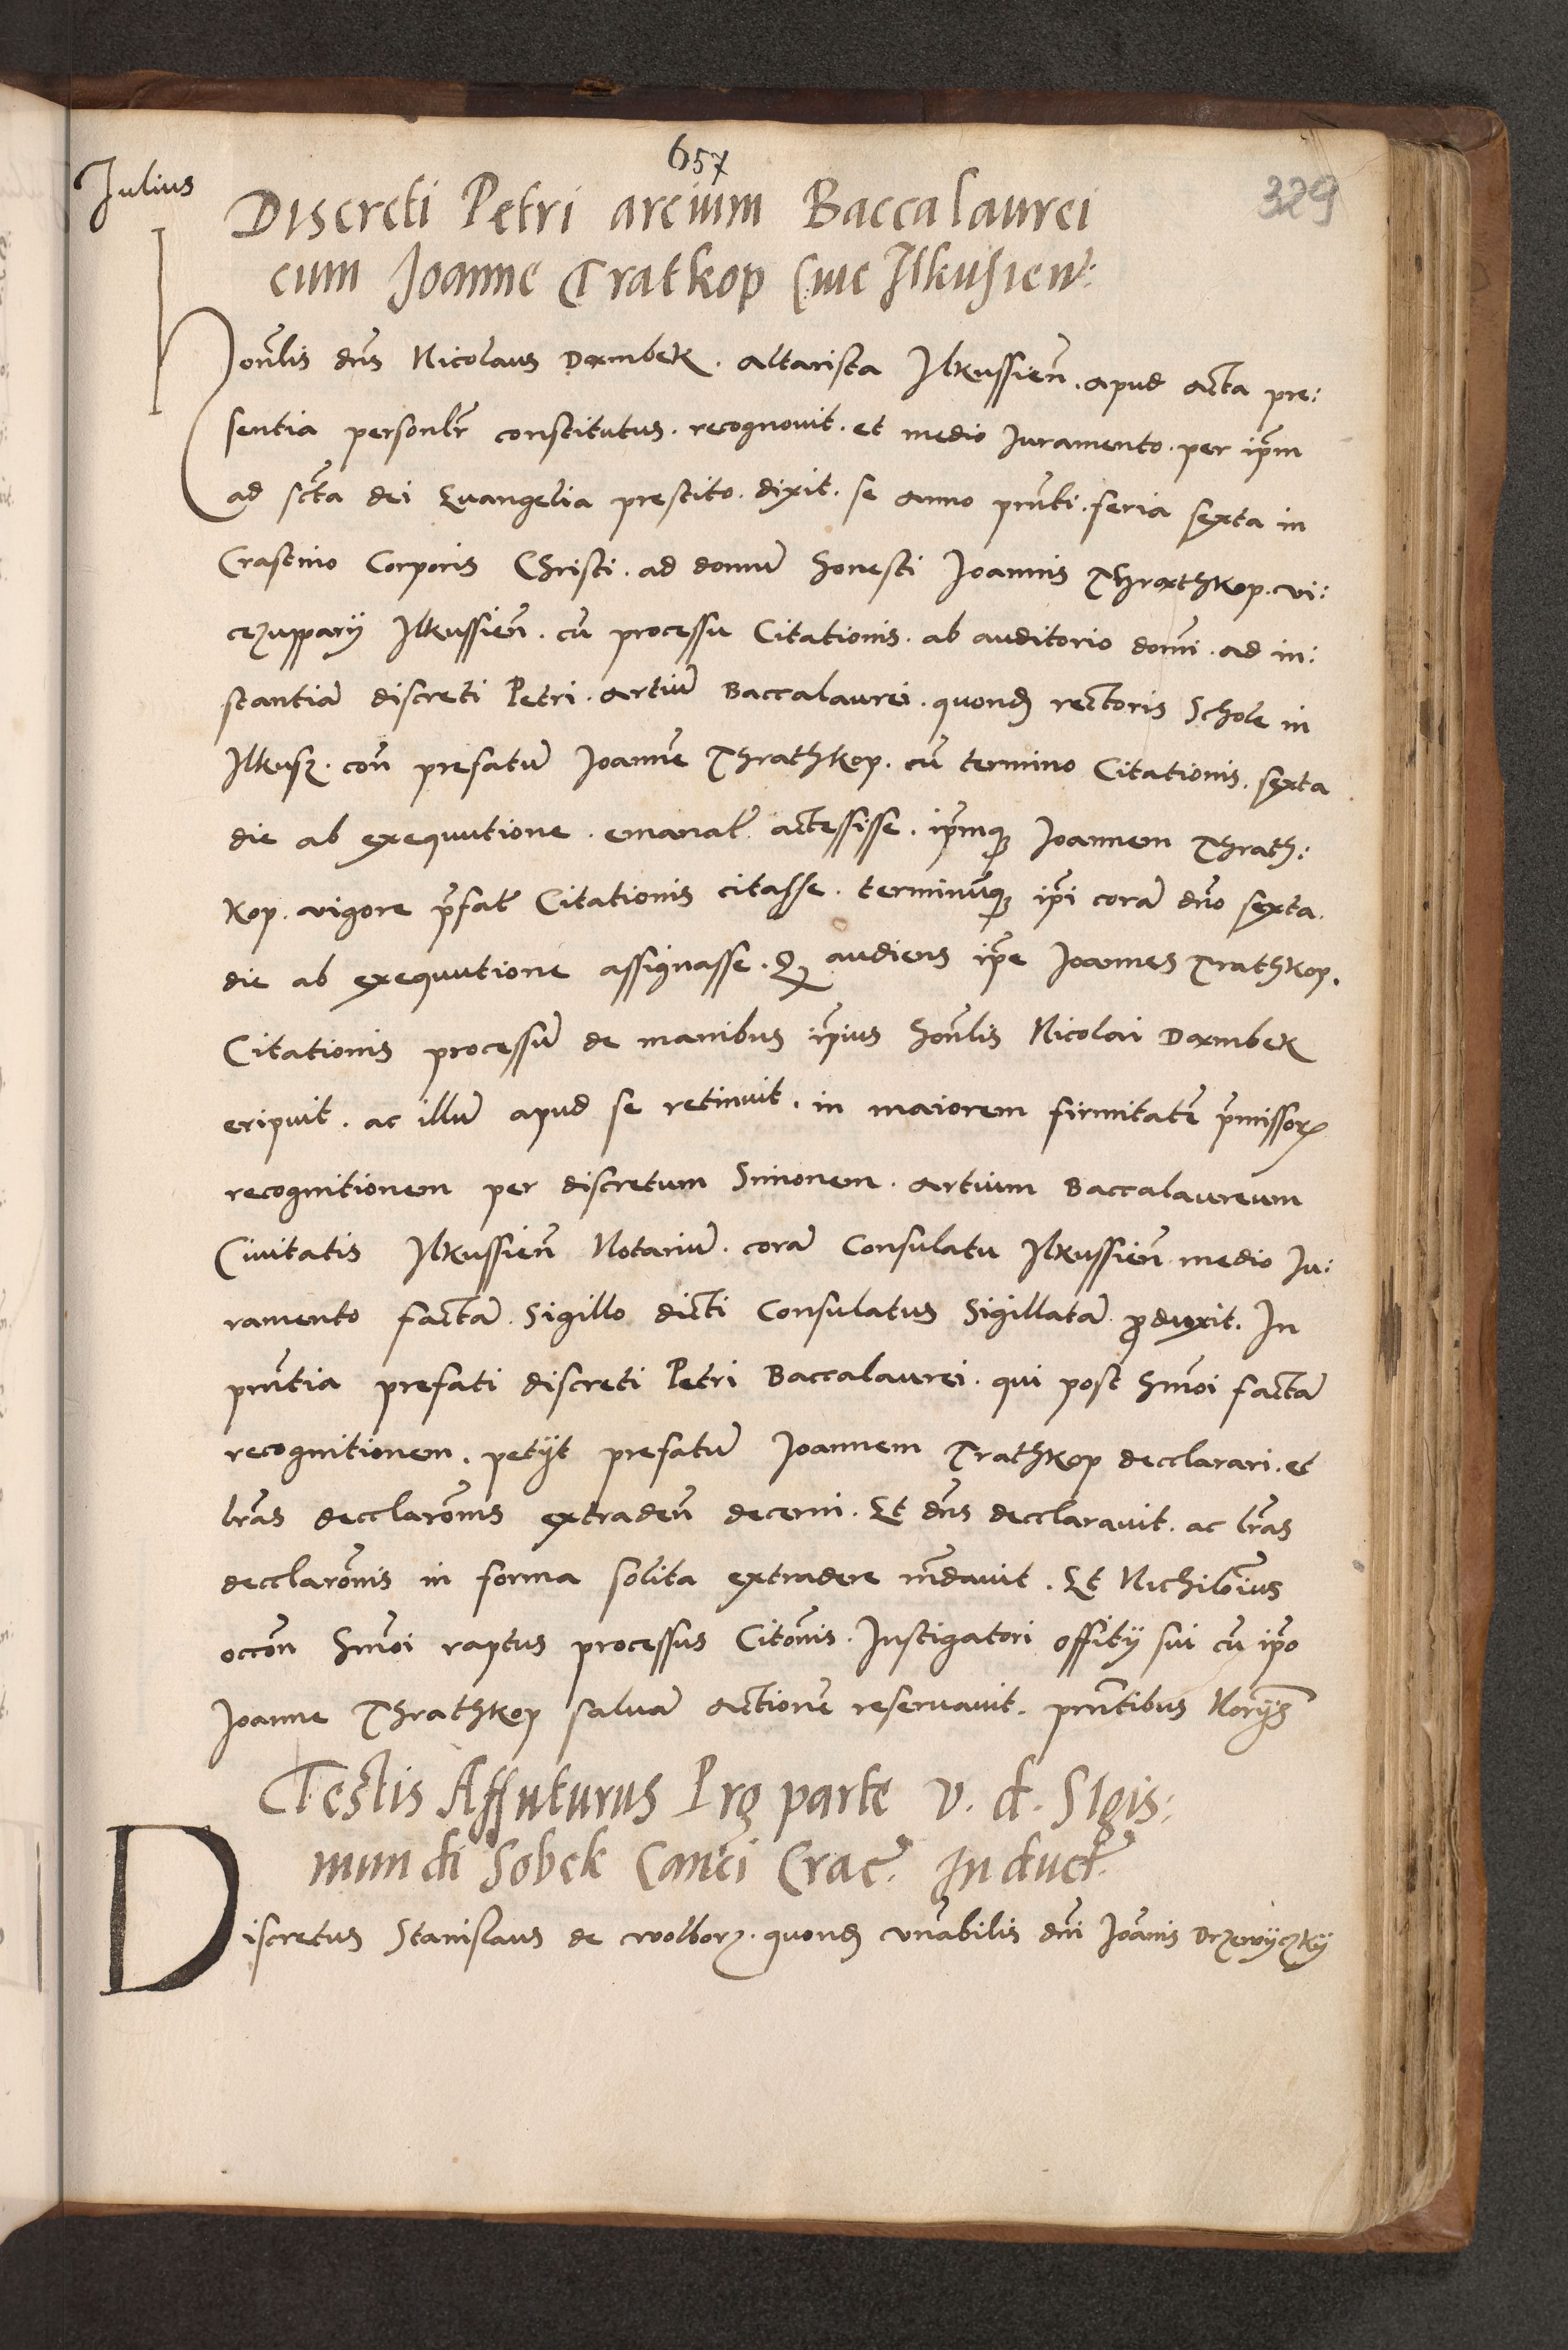 657
Julius
329
Discreti Petri arcium Baccalaurei
cum Joanne Tratkop Cive Ilkusien:
Honlis dns Nicolaus Dormbek. altarista Ilkussien. apud acta pre:
sentia personlr constitutus. recognovit. et medio Juramento. per ipm
ad scta dei Evangelia prestito. dixit. se anno pnti. feria sexta in
Crastino Corporis Christi. ad domu honesti Joannis Thrathkop. vi:
cezupparij Ilkussien. cu processu Citationis. ab auditorio domi. ad in:
stantia discreti Petri. artiu Baccalaurei. quond rectoris Schole in
Ilkusz. con prefatu Joanne Thrathkop. cu termino Citationis. sexta
die ab exequutione. emanat actessisse. ipmq Joannem Thrath:
kop. vigore pfat Citationis citasse. terminuq ipi cora dno sexta.
die ab exequutione assignasse. Q audiens ipe Joannes Trathkop.
Citationis processu de manibus ipius honlis Nicolai Dormbek
eripuit. ac illu apud se retinuit. in maiorem firmitate pmissor
recognitionem per discretum Simonem. artium Baccalaureum
Civitatis Ilkussien Notariu. cora Consulatu Ilkussien medio Ju:
ramento facta. Sigillo dicti Consulatus Sigillata produxit. In
pntia prefati discreti Petri Baccalaurei. qui post hmoi facta
recognitionem. petijt prefatu Joannem Trathkop decclarari. et
lras decclarōnis extraden decerni. Et dns decclaravit. ac lras
decclarōnis in forma solita extradere mdavit. Et Nichilōius
occōn hmoi raptus processus Citōnis. Instigatori offitij sui cu ipo
Joanne Thrathkop salva actione reservavit. pntibus Norijs
Testis Affuturus Pro parte V. d. Sigis:
mundi Sobek Canci Crac. Induct.
Discretus Stanislaus de Wolborz. quond vnabilis dni Joanis Drzewyczky